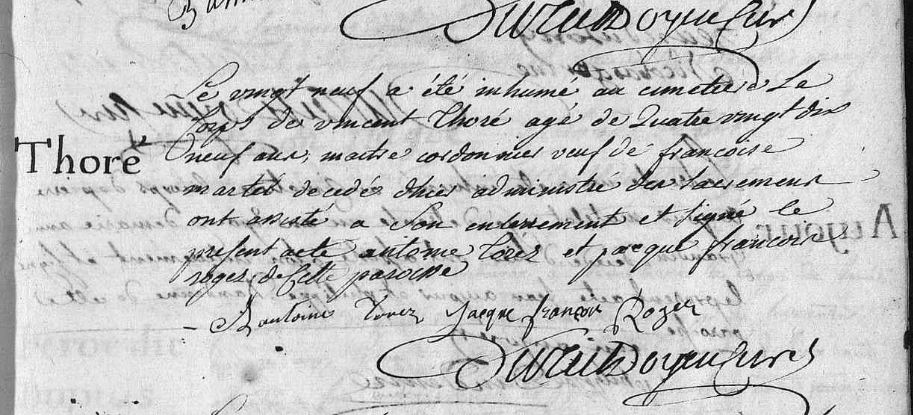 Doyen Curé
Le vingt neuf a été inhumé au cimetiere Le
Corps de vincent Thoré agé de Quatre vingt dix
Thoré
neuf ans, maitre cordonnier veuf de françoise
martel decedé d'hier administré des sacremens
ont assisté a son enterrement et signé le
present acte antoine Torez et jacque francois
roger de cette paroisse
antoine Torez Jacque françois Roger
Doyen Curé